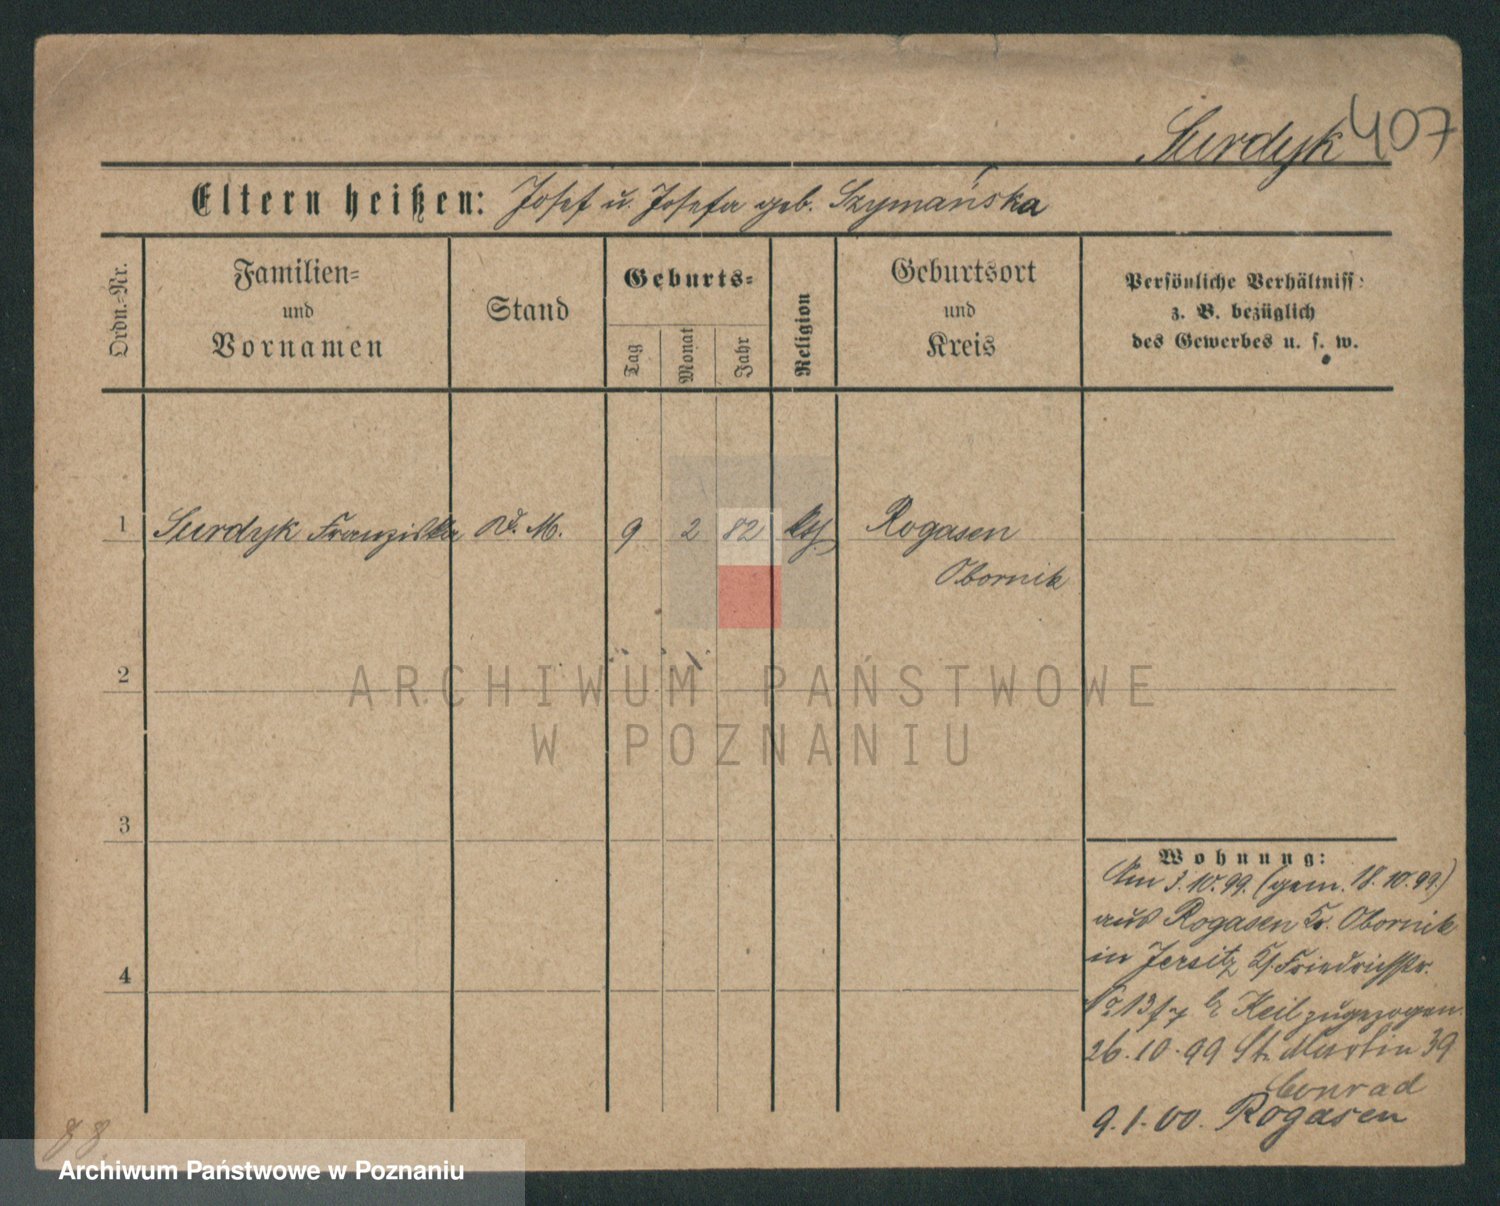 Surdyk 407
Eltern heißen: Josef u. Josefa geb. Szymańska
Ordn.-Nr.
Familien-
und
Vornamen
Stand
Geburts-
Tag
Monat
Jahr
Religion
Geburtsort
und
Kreis
Persönliche Verhältniss:
z. B. bezüglich
des Gewerbes u. s. w.
1 Surdyk Franziska D. M. 9 2 82 kth Rogasen
Obornik
2
ARCHIWUM PAŃSTWOWE
W POZNANIU
3
4
Wohnung:
Am 3.10.99. (gem. 18.10.99)
aus Rogasen Kr. Obornik
in Jersitz Gr. Friedrichstr.
No 13 b. Keil zugezogen.
26.10.99 St. Martin 39
Conrad
9.1.00. Rogasen
Archiwum Państwowe w Poznaniu